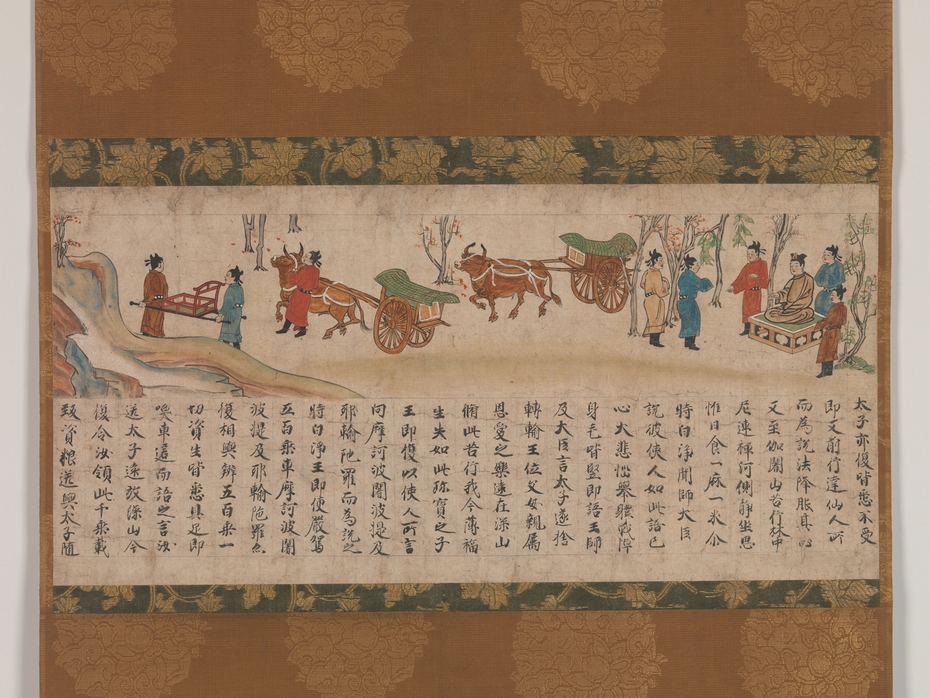 太子亦復皆悉不受
即又前行達仙人所
而為說法降服其心
又至伽闍山苦行林中
尼連禪河側靜坐思
惟日食一麻一米
時白淨聞師大臣
說彼使人如此語已
心大悲惱舉體戰掉
身毛皆竪即語王師
及大臣言太子遂捨
轉輪王位父母親属
恩愛之樂遠在深山
脩此苦行我今薄福
生失如此珎寶之子
王即復以使人所言
向摩訶波闍波提及
耶輸陁羅而為說之
時白淨王即便嚴駕
五百乘車摩訶波闍
波提及耶輸陁羅亦
復相與辦五百乘一
切資生皆悉具足即
喚車匿而語之言汝
送太子遠放深山今
復令汝領此千乘載
致資粮送與太子随